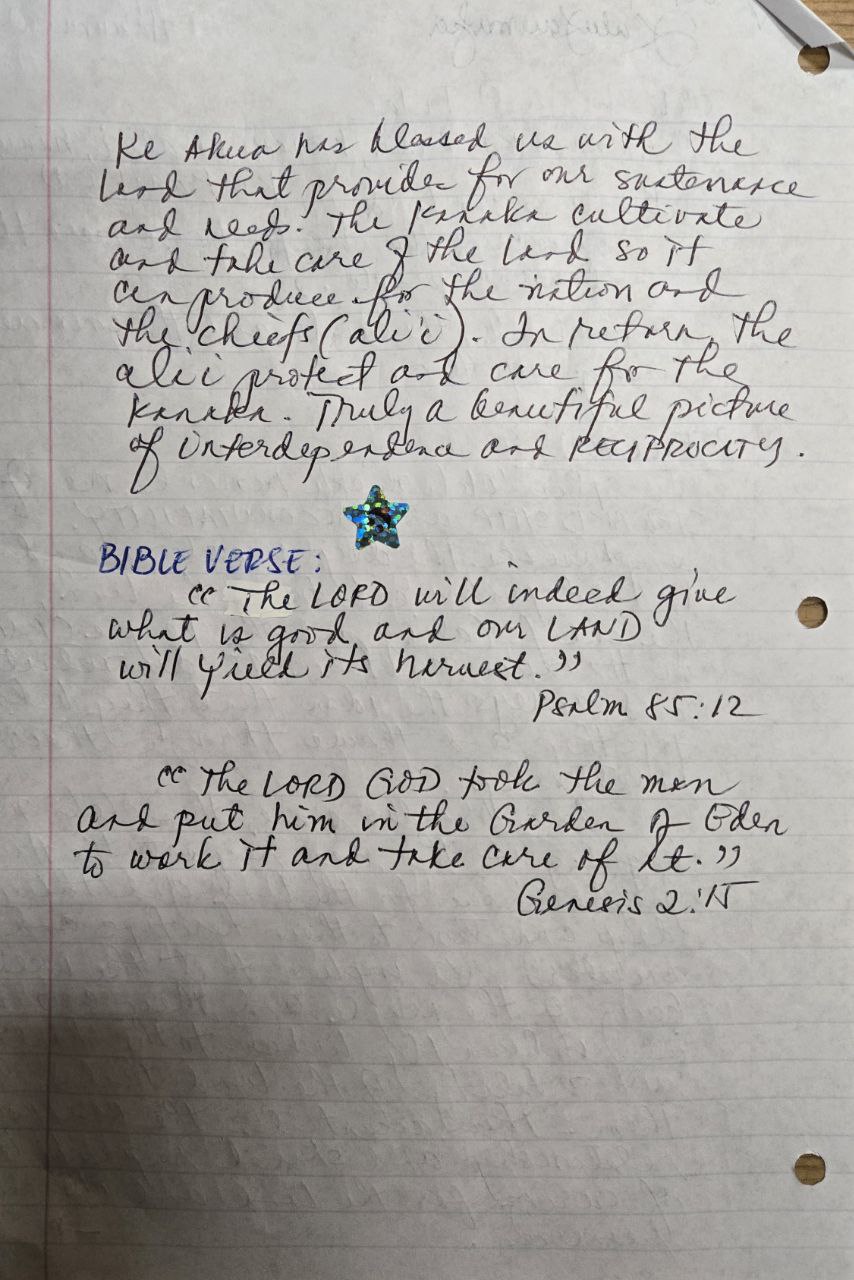 Ke Akua has blessed us with the
land that provides for our sustenance
and needs. The Kanaka cultivate
and take care of the land so it
can produce for the nation and
the chiefs (ali'i). In return, the
ali'i protect and care for the
Kanaka. Truly a beautiful picture
of interdependence and RECIPROCITY.
BIBLE VERSE:
"The LORD will indeed give
what is good and our LAND
will yield its harvest."
Psalm 85:12
"The LORD GOD took the man
and put him in the Garden of Eden
to work it and take care of it."
Genesis 2:15